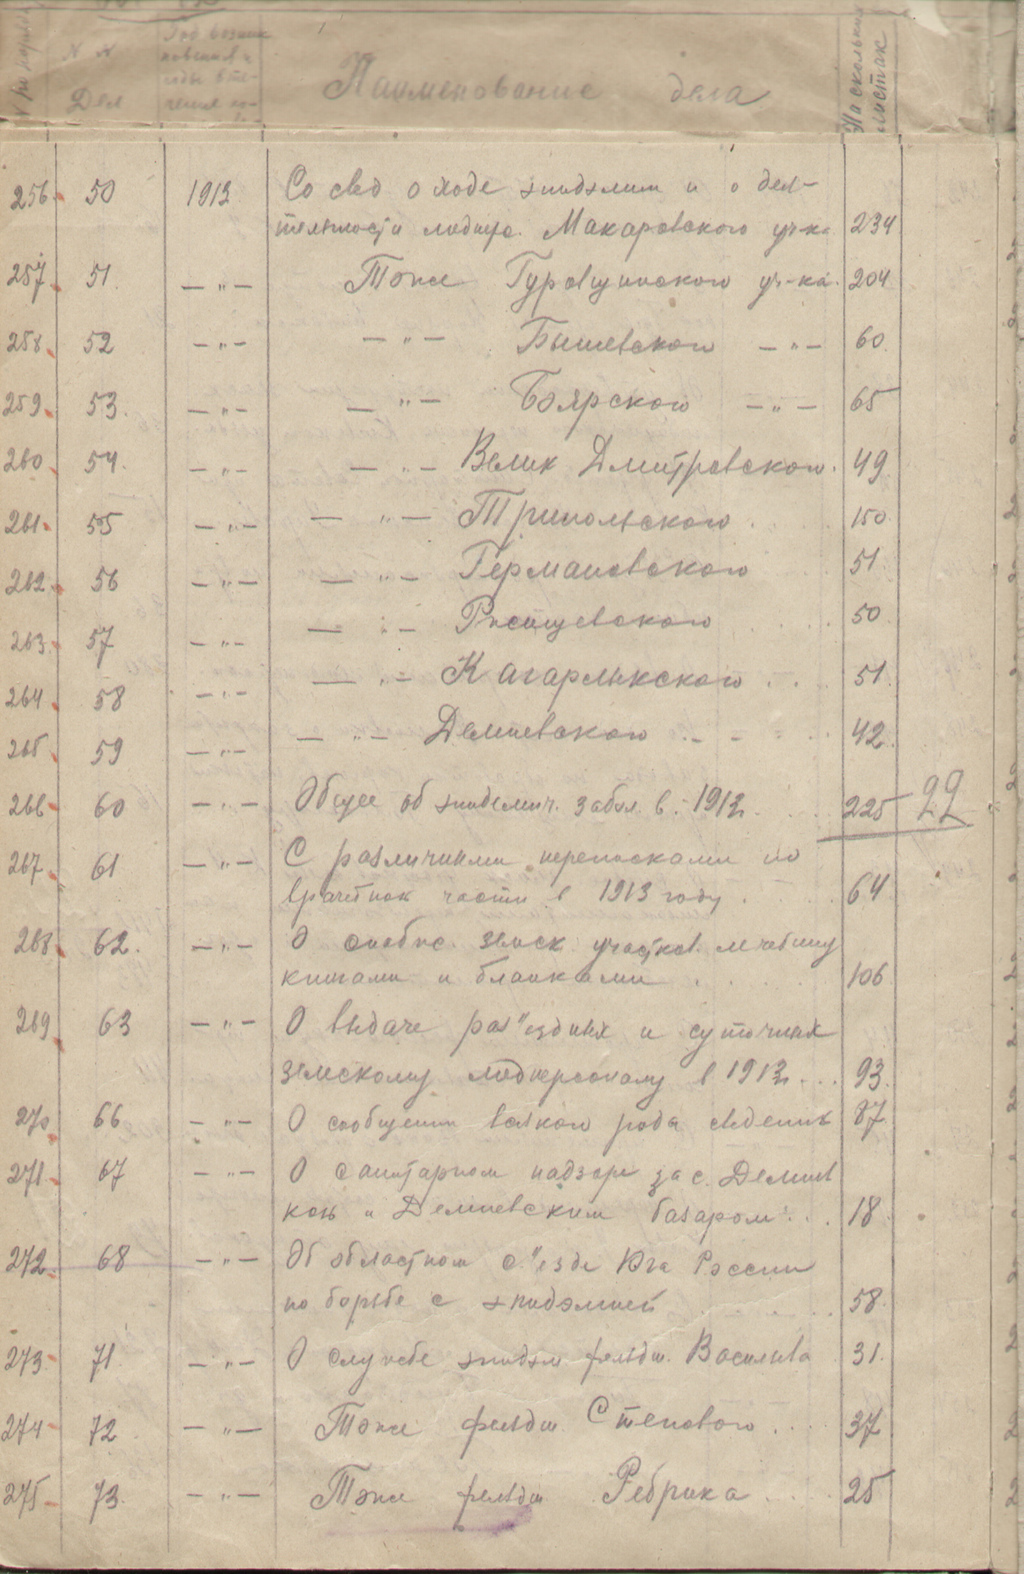 N по поряд. N N Дел Год возник новения и Наименование дела На скольких листах
256 50 1913 Со свед о ходе эпидемии и о дея-
тельности медперс. Макаровского уч-ка 234
257 51 — „ — Тоже Гуровщинского уч-ка 204
258 52 — „ — — „ — Бышевского — „ — 60
259 53. — „ — — „ — Боярского — „ — 65
260 54. — „ — — „ — Велик Дмитровского. 49
261 55 — „ — — „ — Трипольского 150
262 56 — „ — — „ — Германовского 51
263 57 — „ — — „ — Ржищевского 50
264 58 — „ — — „ — Кагарлыкского 51
265 59 — „ — — „ — Демиевского 42
266 60 — „ — Общее об эпидемич. забол. в 1913 225 22
267 61 — „ — С различными переписками по
врачебной части в 1913 году 64
268 62. — „ — О снабже. земск. участков лечебниц
книгами и бланками 106
269 63 — „ — О выдаче раз"ездных и суточных
земскому медперсоналу в 1913 93
270 66 — „ — О сообщении всякого рода сведений 87
271 67 — „ — О санитарном надзоре за с. Демиев
кой и Демиевским базаром 18
272 68 — „ — Об областном с"езде Юга России
по борьбе с эпидэмией 58
273 71 — „ — О службе эпидэм фельдш. Васильева 31
274 72 — „ — Тоже фельдш Степового 37
275 73 — „ — Тоже фельдш Ребрика 25